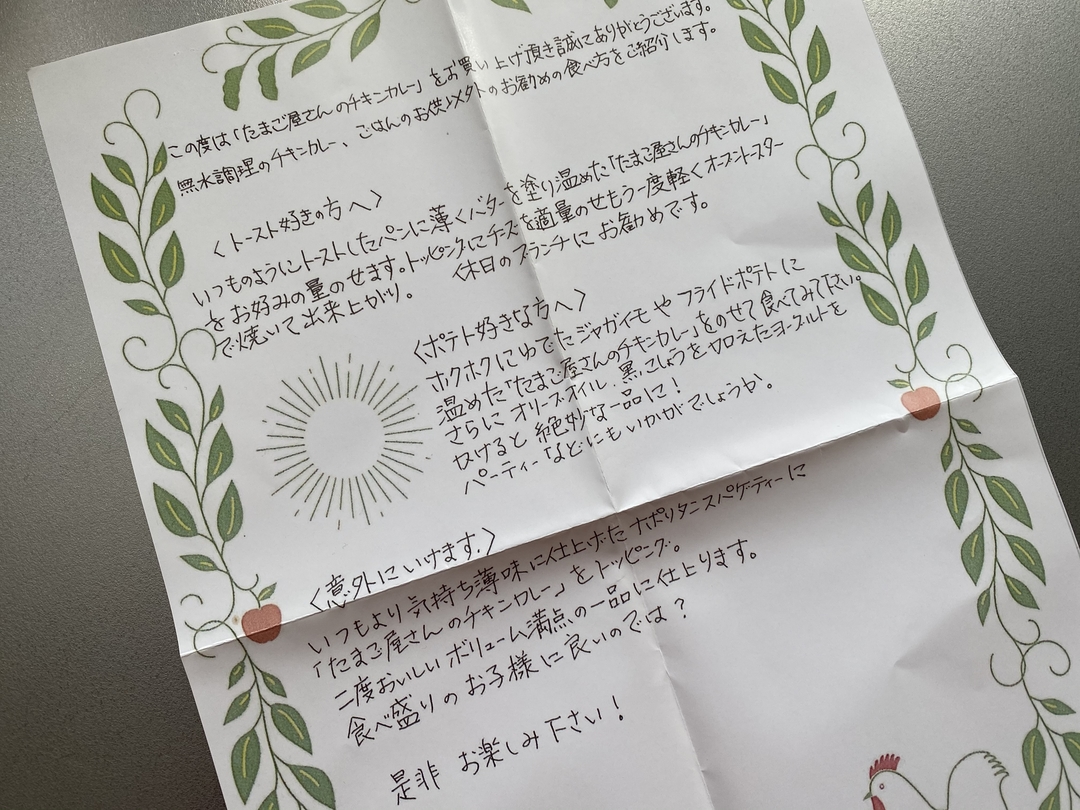 この度は「たまご屋さんのチキンカレー」をお買い上げ頂き誠にありがとうございます。
無水調理のチキンカレー、ごはんのお供以外のお勧めの食べ方をご紹介します。
〈トースト好きの方へ〉
いつものようにトーストしたパンに薄くバターを塗り温めた「たまご屋さんのチキンカレー」
をお好みの量のせます。トッピングにチーズを適量のせもう一度軽くオーブントースター
で焼いて出来上がり。 〈休日のブランチにお勧めです。
〈ポテト好きな方へ〉
ホクホクにゆでたジャガイモやフライドポテトに
温めた「たまご屋さんのチキンカレー」をのせて食べてみて下さい。
さらにオリーブオイル、黒こしょうを加えたヨーグルトを
かけると絶妙な一品に!
パーティーなどにもいかがでしょうか。
〈意外にいけます。〉
いつもより気持ち薄味に仕上げたナポリタンスパゲティーに
「たまご屋さんのチキンカレー」をトッピング。
二度おいしいボリューム満点の一品に仕上ります。
食べ盛りのお子様に良いのでは?
是非 お楽しみ下さい!